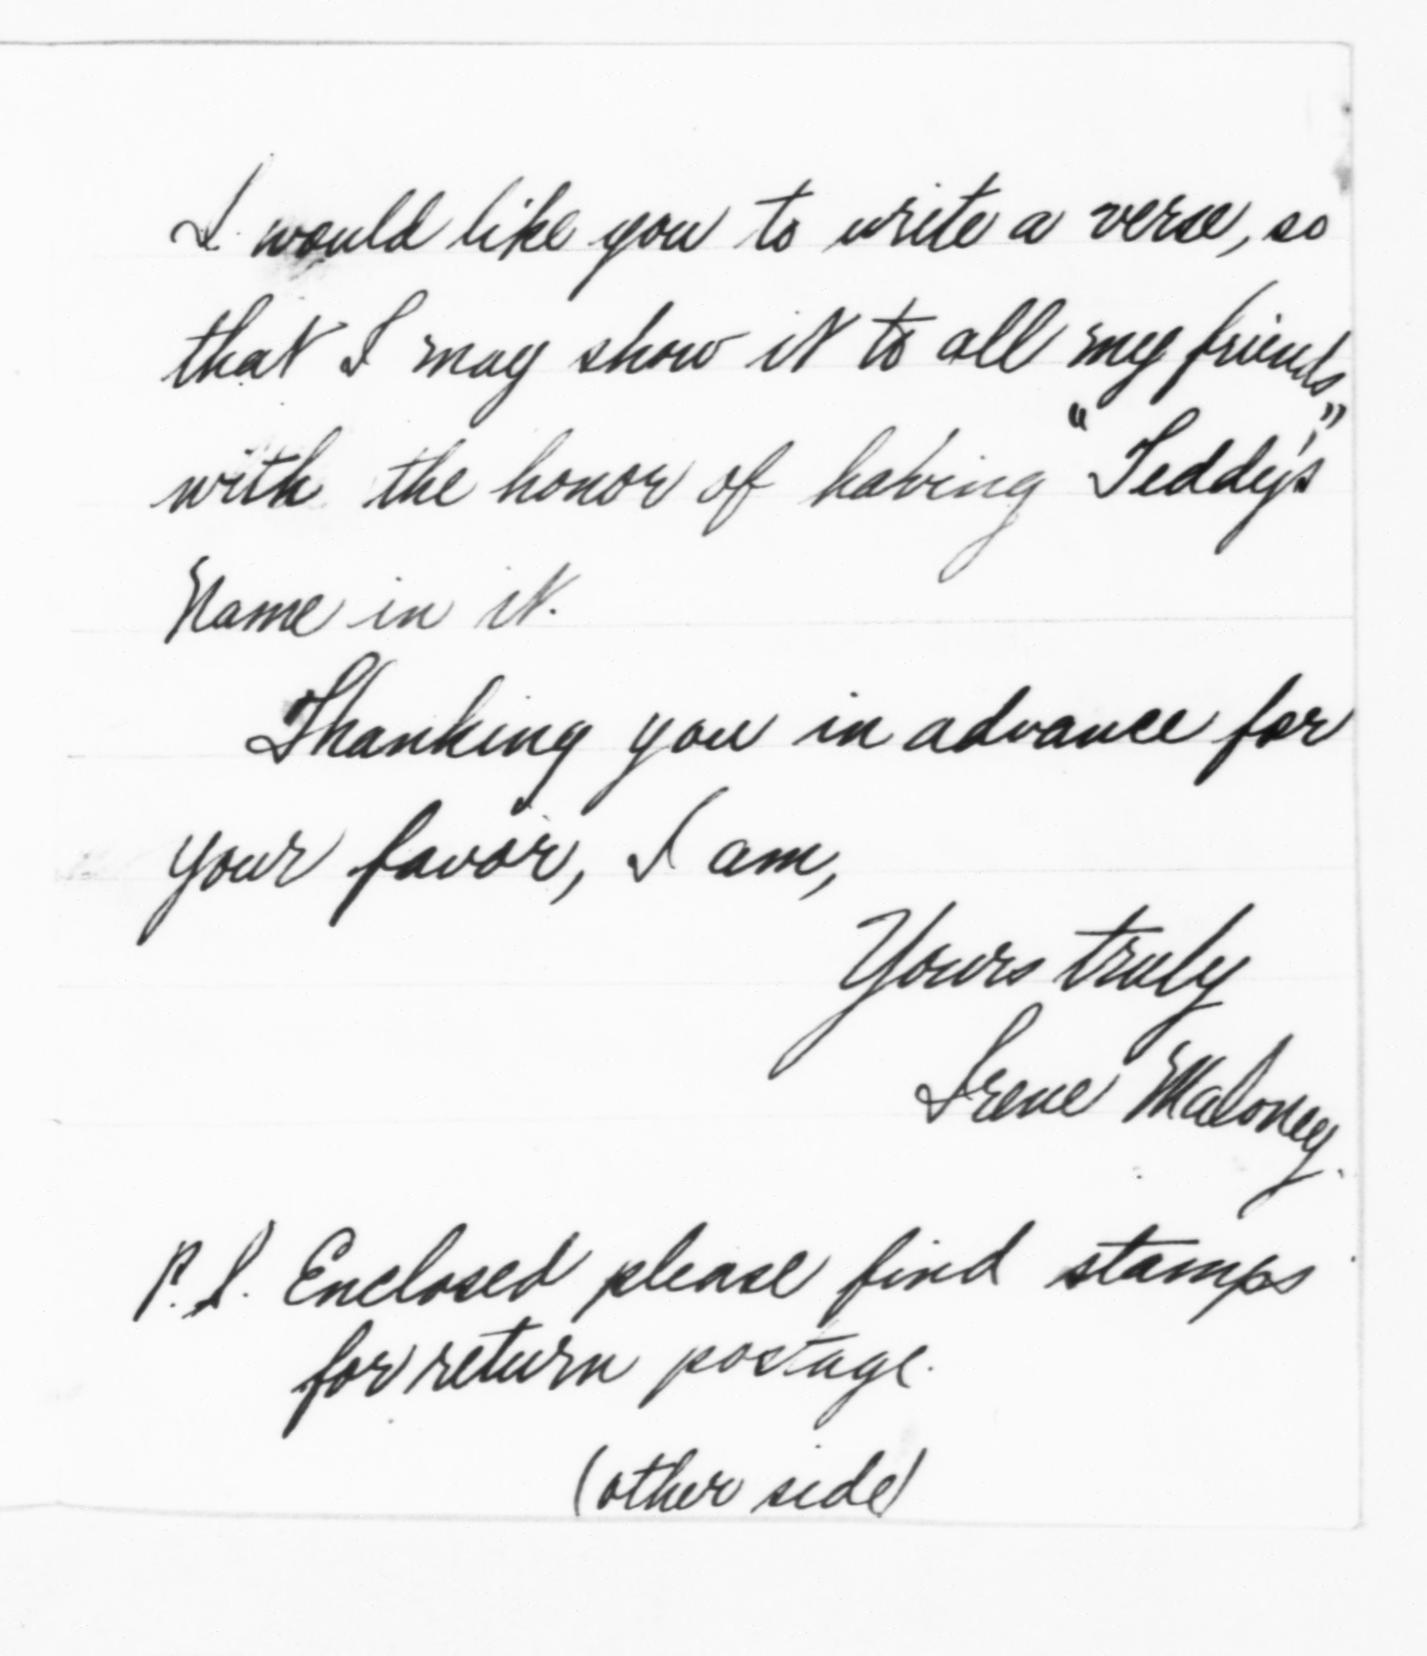 I would like you to write a verse, so
that I may show it to all my friends
with the honor of having "Teddy's"
Name in it.
Thanking you in advance for
your favor, I am,
Yours truly
Irene Maloney.
P.S. Enclosed please find stamps
for return postage.
(other side)